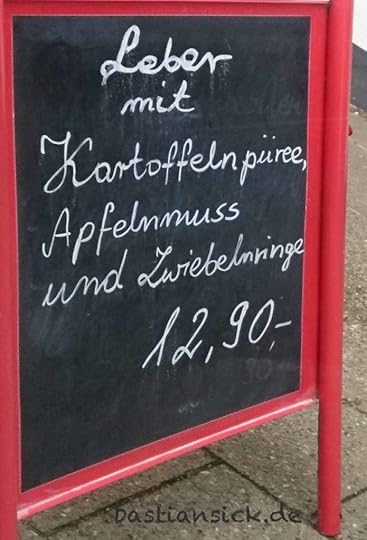 Leber
mit
Kartoffelnpüree,
Apfelnmuss
und Zwiebelnringe
12,90,-
Bastiansick.de